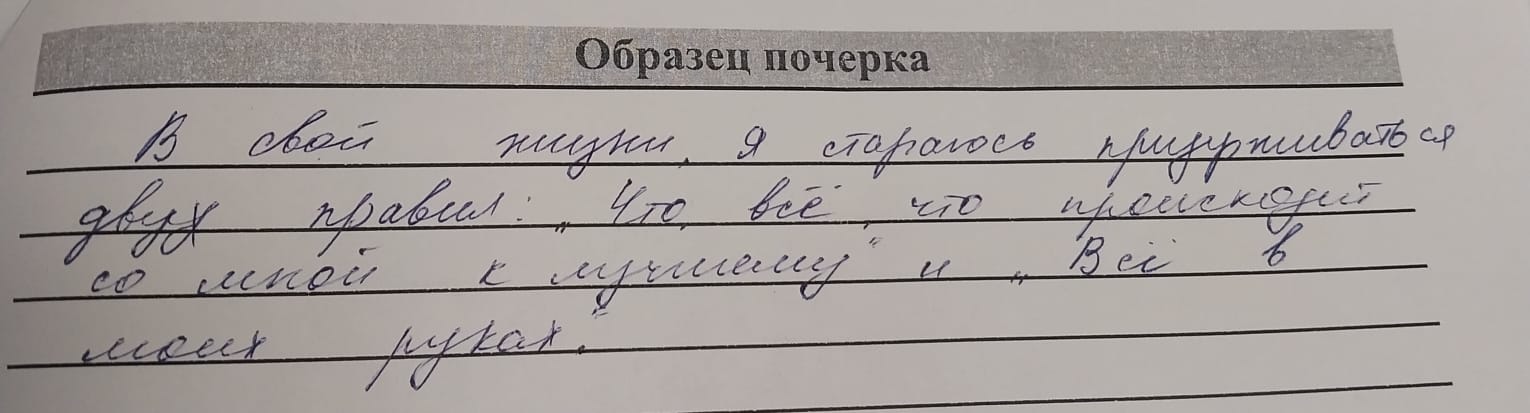 Образец почерка
В свой жизни, я стараюсь придерживаться
двух правил: „Что, всё, что происходит
со мной к лучшему" и „Всё в
моих руках".